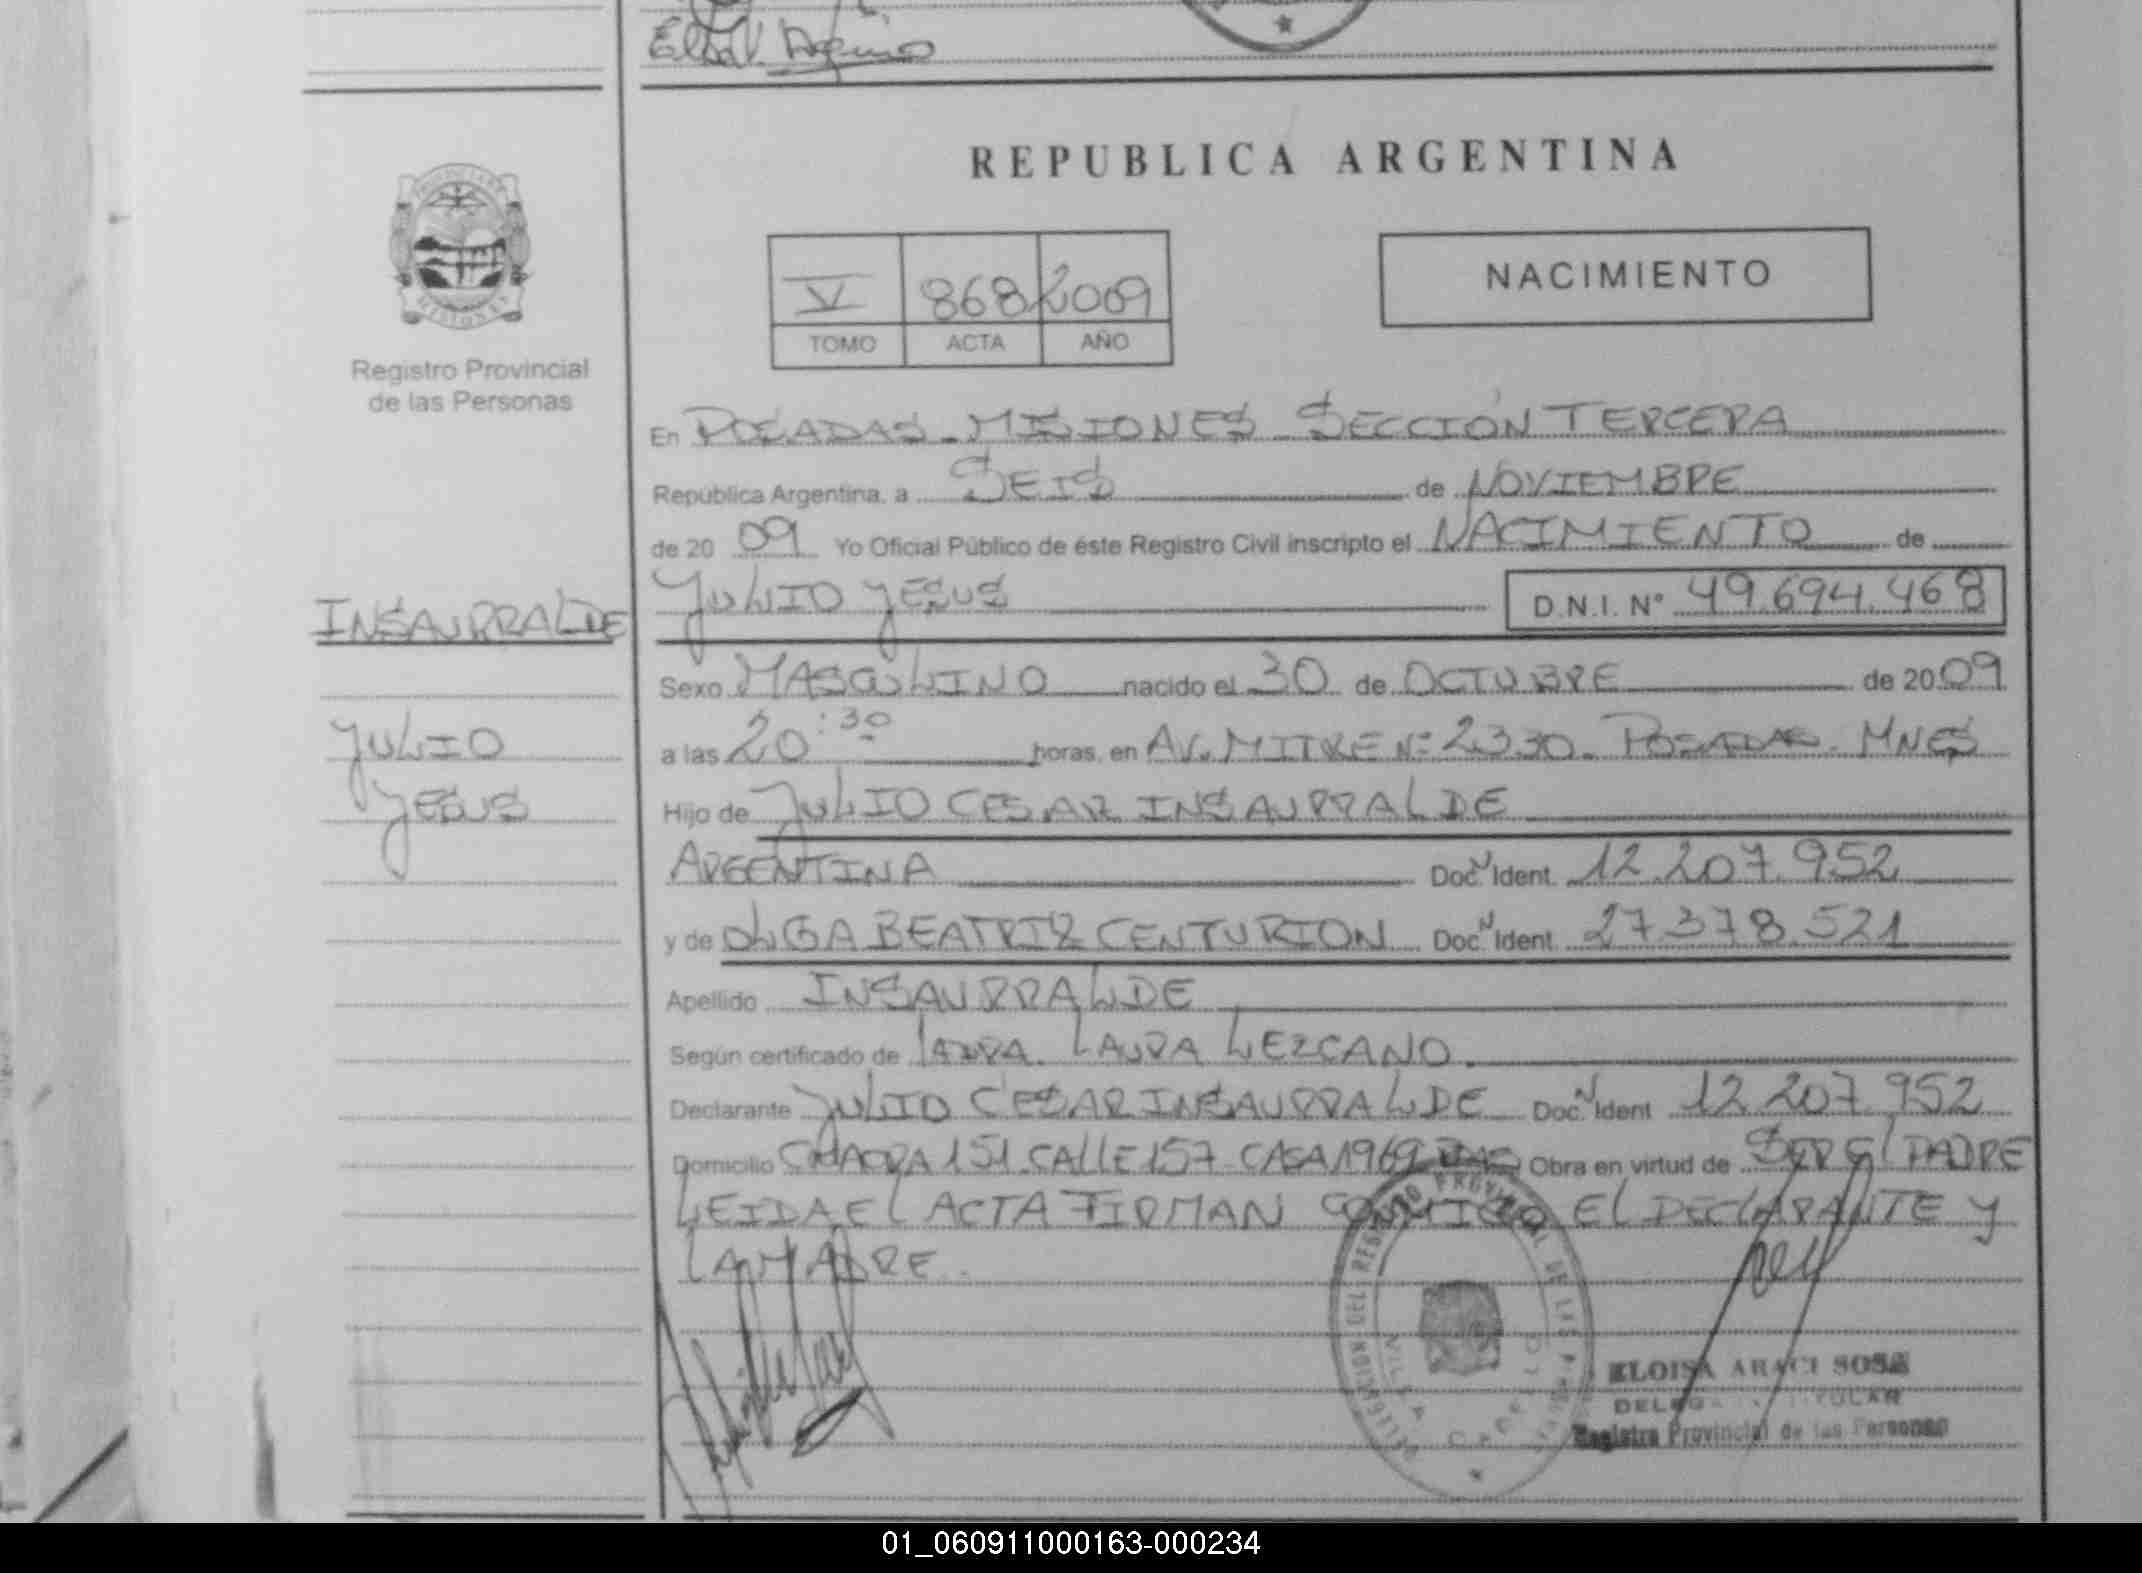 Elsa V. Aquino
REPUBLICA ARGENTINA
V 868 2009
TOMO ACTA AÑO
NACIMIENTO
Registro Provincial
de las Personas
En POSADAS - MISIONES SECCIÓN TERCERA
República Argentina, a SEIS de NOVIEMBRE
de 20 09 Yo Oficial Público de éste Registro Civil inscripto el NACIMIENTO de
INSAURRALDE
JULIO JESUS D.N.I. Nº 49.694.468
Sexo MASCULINO nacido el 30 de OCTUBRE de 20 09
JULIO
a las 20:30 horas, en AV. MITRE Nº 2330 - POSADAS - MNES
JESUS
Hijo de JULIO CESAR INSAURRALDE
ARGENTINA Doc. N Ident. 12.207.952
y de OLGA BEATRIZ CENTURION Doc. N Ident. 27.378.521
Apellido INSAURRALDE
Según certificado de LAURA LEZCANO.
Declarante JULIO CESAR INSAURRALDE Doc. N Ident 12.207.952
Domicilio CHACRA 151 CALLE 157 CASA 1969 Obra en virtud de SER El PADRE
LEIDA El ACTA FIRMAN CONMIGO El DECLARANTE Y
LA MADRE.
DELEGACION DEL REGISTRO PROVINCIAL DE LAS PERSONAS
VILLA CABELLO
ELOISA ARACI SOSA
DELEGADA TITULAR
Registro Provincial de las Personas
01_060911000163-000234